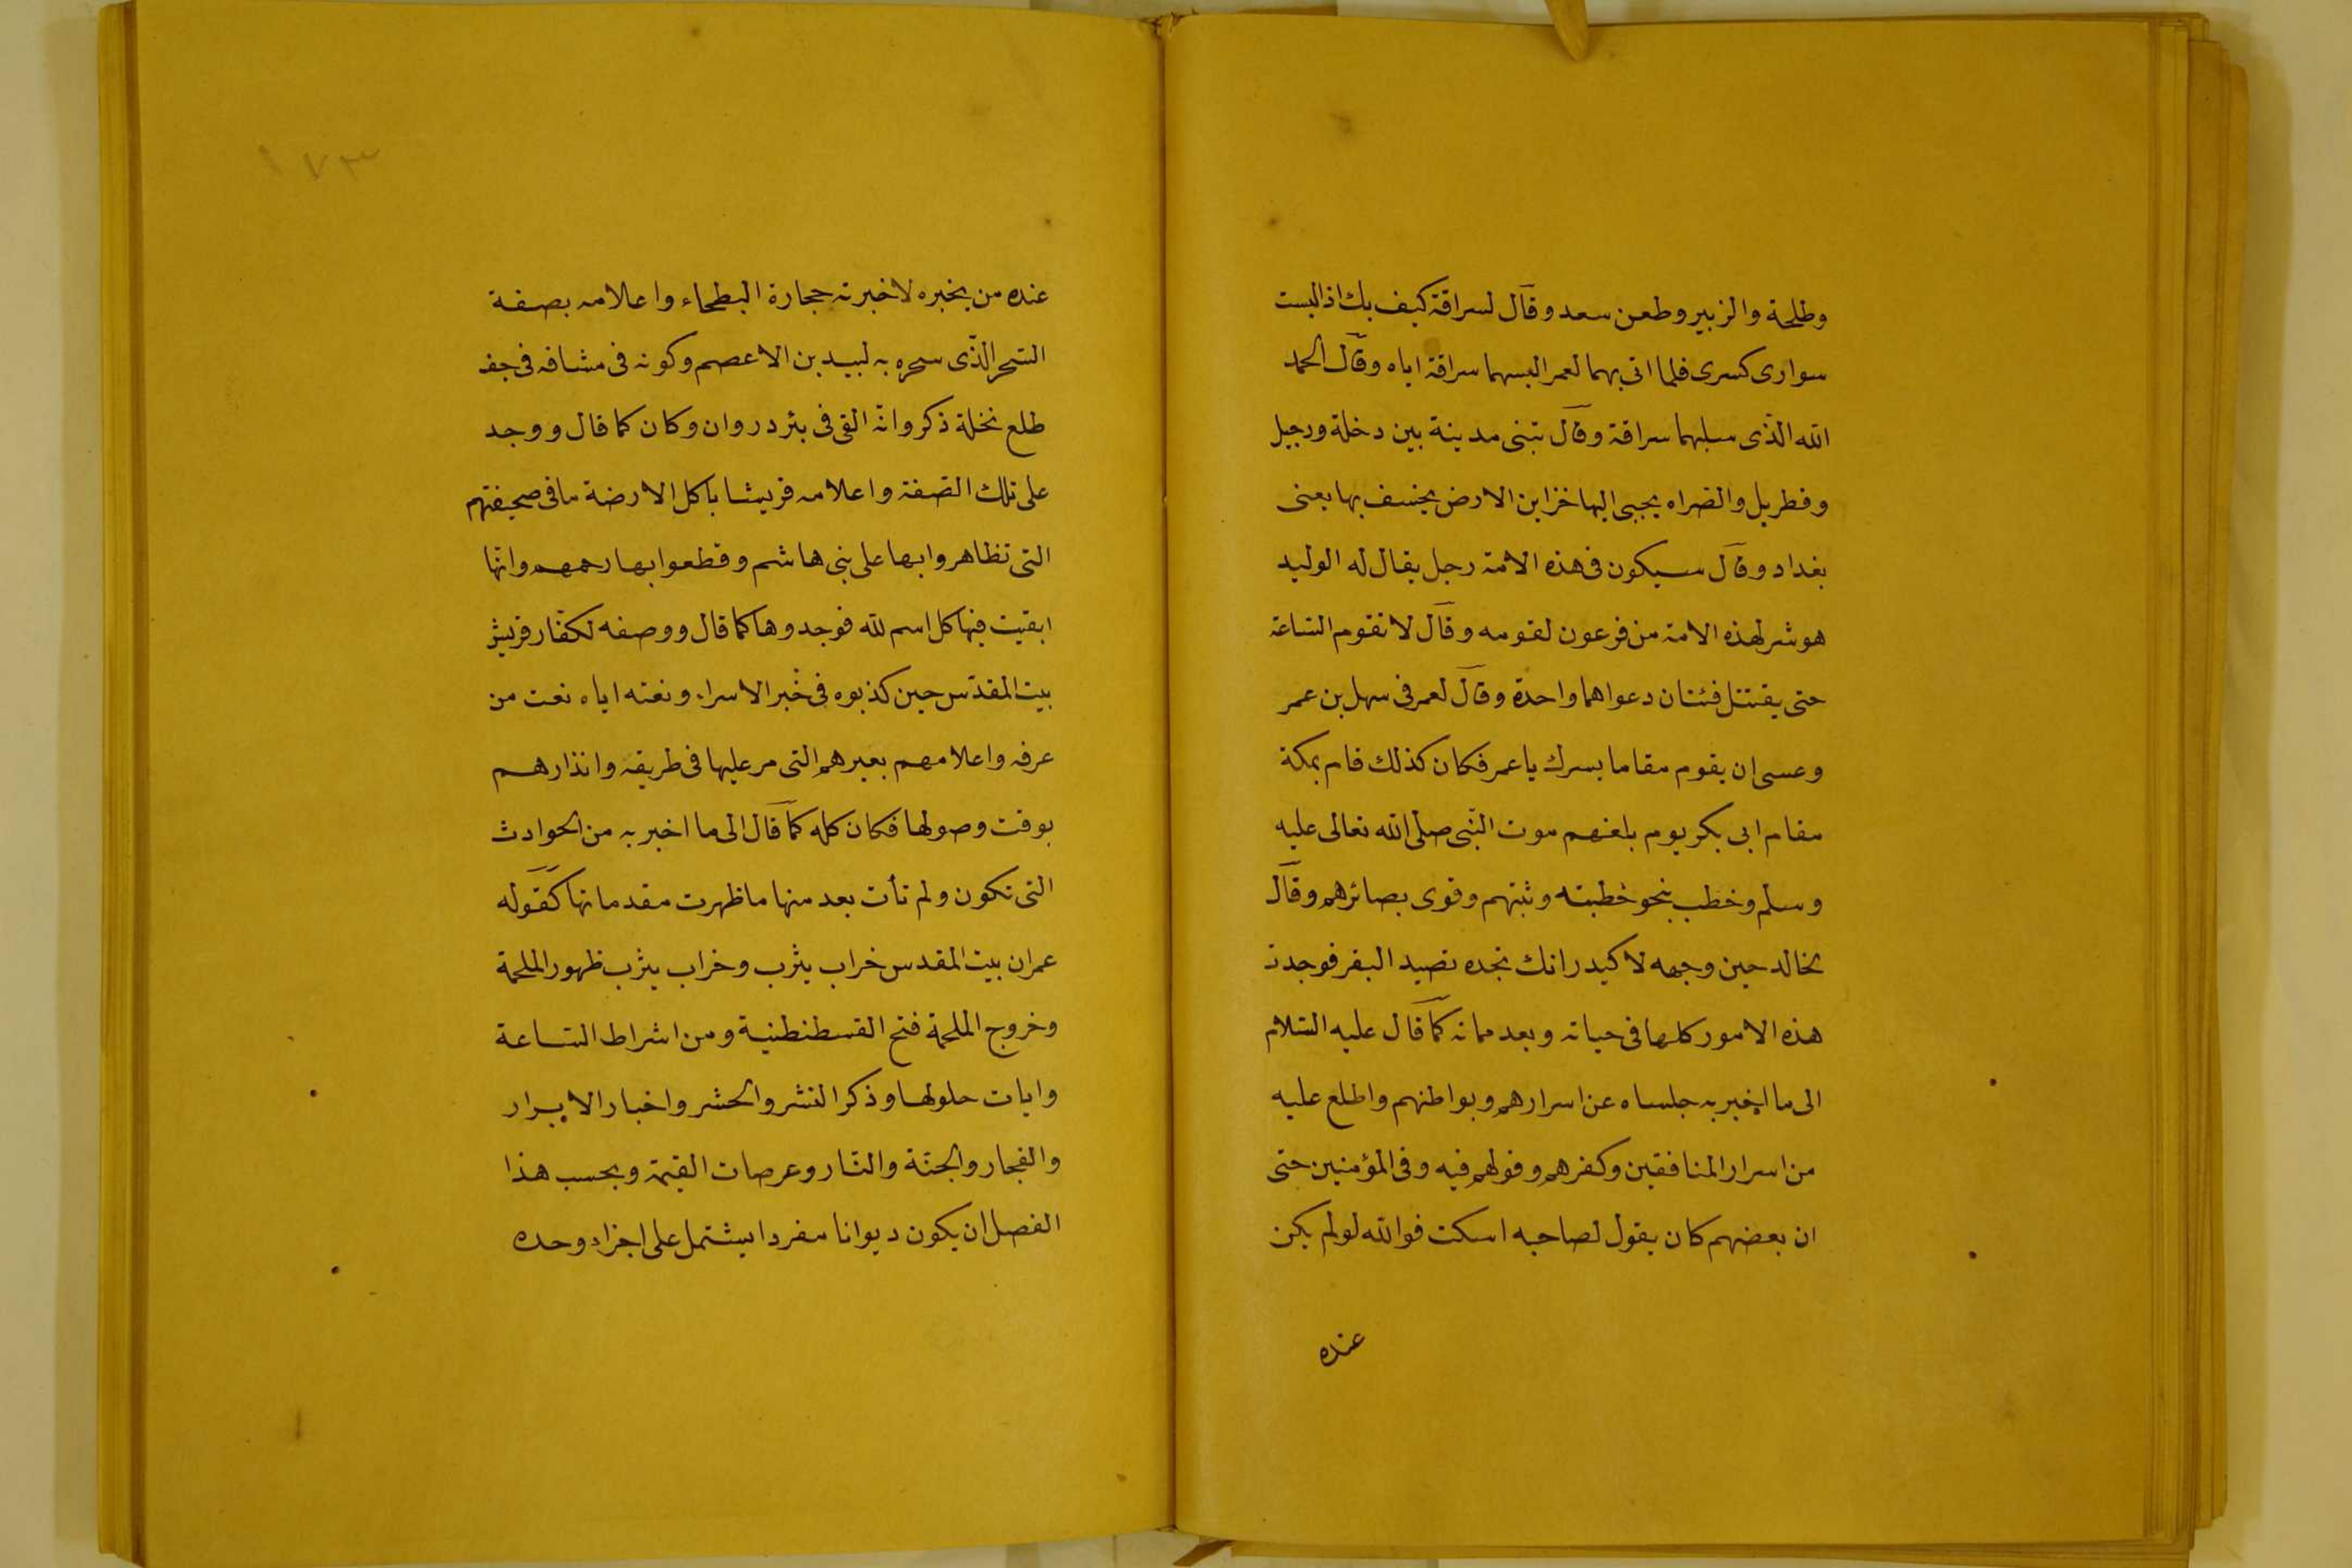 وطلحة والزبير وطعن سعد وقال لسراقة كيف بك اذا لبست
سوارى كسرى فلما اتى بهما لعمر البسهما سراقة اياه وقال الحمد
الله الذّى سلبهما سراقة وقال تبنى مدينة بين دخلة ودجيل
وقطربل والصراه يجبى اليها خزاين الارض يخسف بها يعنى
بغداد وقال سيكون فى هذه الامّة رجل يقال له الوليد
هو شر لهذه الامة من فرعون لقومه وقال لا تقوم السّاعة
حتى يقتتل فئتان دعواهما واحدة وقال لعمر فى سهل بن عمر
وعسى ان يقوم مقاما يسرك يا عمر فكان كذلك قام بمكة
مقام ابى بكر يوم بلغهم موت النّبى صلى الله تعالى عليه
وسلم وخطب بنحو خطبته وثبتهم وقوى بصائرهم وقال
لخالد حين وجهه لاكيدر انك تجده تصيد البقر فوجدت
هذه الامور كلها فى حياته وبعد مماته كما قال عليه السّلام
الى ما اخبر به جلساه عن اسرارهم وبواطنهم واطلع عليه
من اسرار المنافقين وكفرهم وقولهم فيه وفى المؤمنين حتى
ان بعضهم كان يقول لصاحبه اسكت فوالله لو لم يكن
عنده
١٧٣
عنده من يخبره لاخبرته حجارة البطحاء واعلامه بصفة
السّحر الذّى سحره به لبيد بن الاعصم وكونه فى مشاقه فى جف
طلع نخلة ذكر وانّه القى فى بئر دروان وكان كما قال ووجد
على تلك الصّفة واعلامه قريشا باكل الارضة ما فى صحيفتهم
التى تظاهروا بها على بنى هاشم وقطعوا بها رحمهم وانّها
ابقيت فيها كل اسم لله فوجدوها كما قال ووصفه لكفّار قريش
بيت المقدّس حين كذبوه فى خبر الاسراء ونعته اياه نعت من
عرفه واعلامهم بعيرهم التى مر عليها فى طريقه وانذارهم
بوقت وصولها فكان كله كما قال الى ما اخبر به من الحوادث
التى تكون ولم تأت بعد منها ما ظهرت مقدماتها كقوله
عمران بيت المقدس خراب يثرب وخراب يثرب ظهور الملحمة
وخروج الملحمة فتح القسطنطنية ومن اشراط السّاعة
وايات حلولها وذكر النشر والحشر واخبار الابرار
والفجار والجنّة والنّار وعرصات القيمة وبحسب هذا
الفصل ان يكون ديوانا مفردا يشتمل على اجزاء وحده